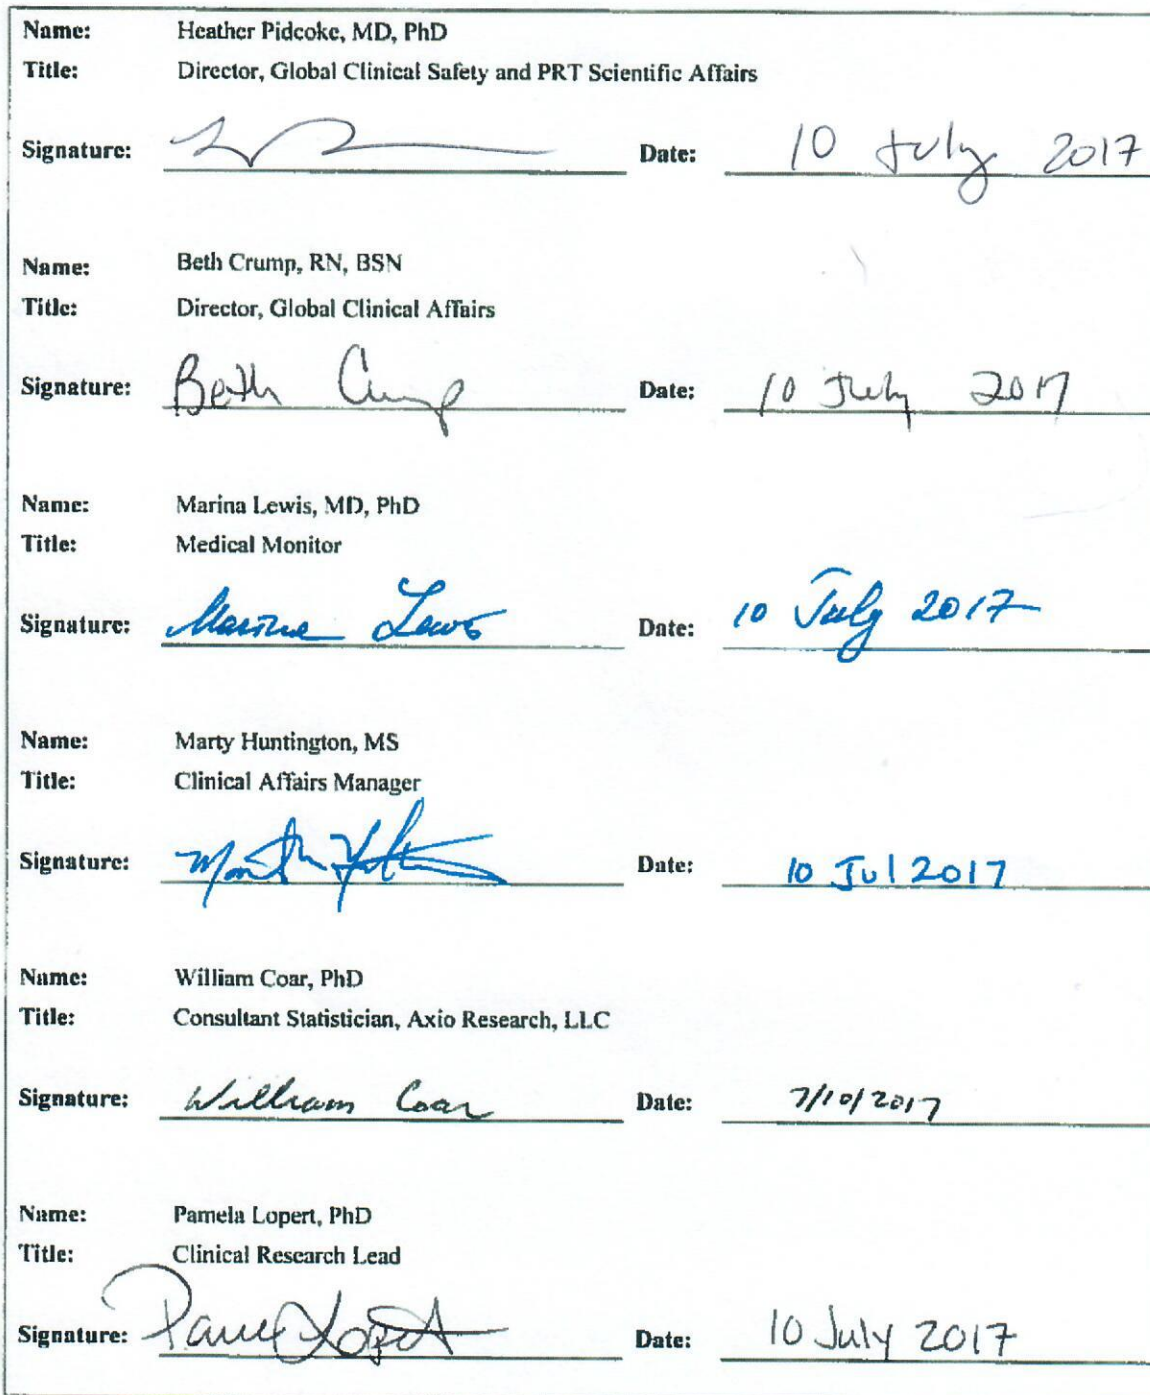 Name: Heather Pidcoke, MD, PhD
Title: Director, Global Clinical Safety and PRT Scientific Affairs
Signature: Date: 10 July 2017
Name: Beth Crump, RN, BSN
Title: Director, Global Clinical Affairs
Signature: Beth Crump Date: 10 July 2017
Name: Marina Lewis, MD, PhD
Title: Medical Monitor
Signature: Marina Lewis Date: 10 July 2017
Name: Marty Huntington, MS
Title: Clinical Affairs Manager
Signature: Date: 10 Jul 2017
Name: William Coar, PhD
Title: Consultant Statistician, Axio Research, LLC
Signature: William Coar Date: 7/10/2017
Name: Pamela Lopert, PhD
Title: Clinical Research Lead
Signature: Date: 10 July 2017